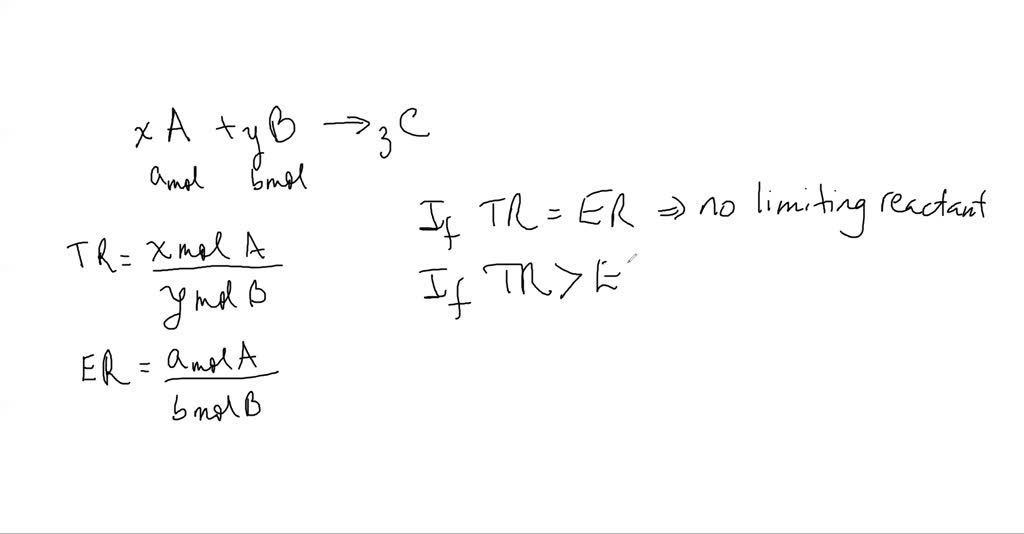 xA + yB → zC
a mol b mol
TR = x mol A / y mol B
ER = a mol A / b mol B
If TR = ER ⇒ no limiting reactant
If TR > E